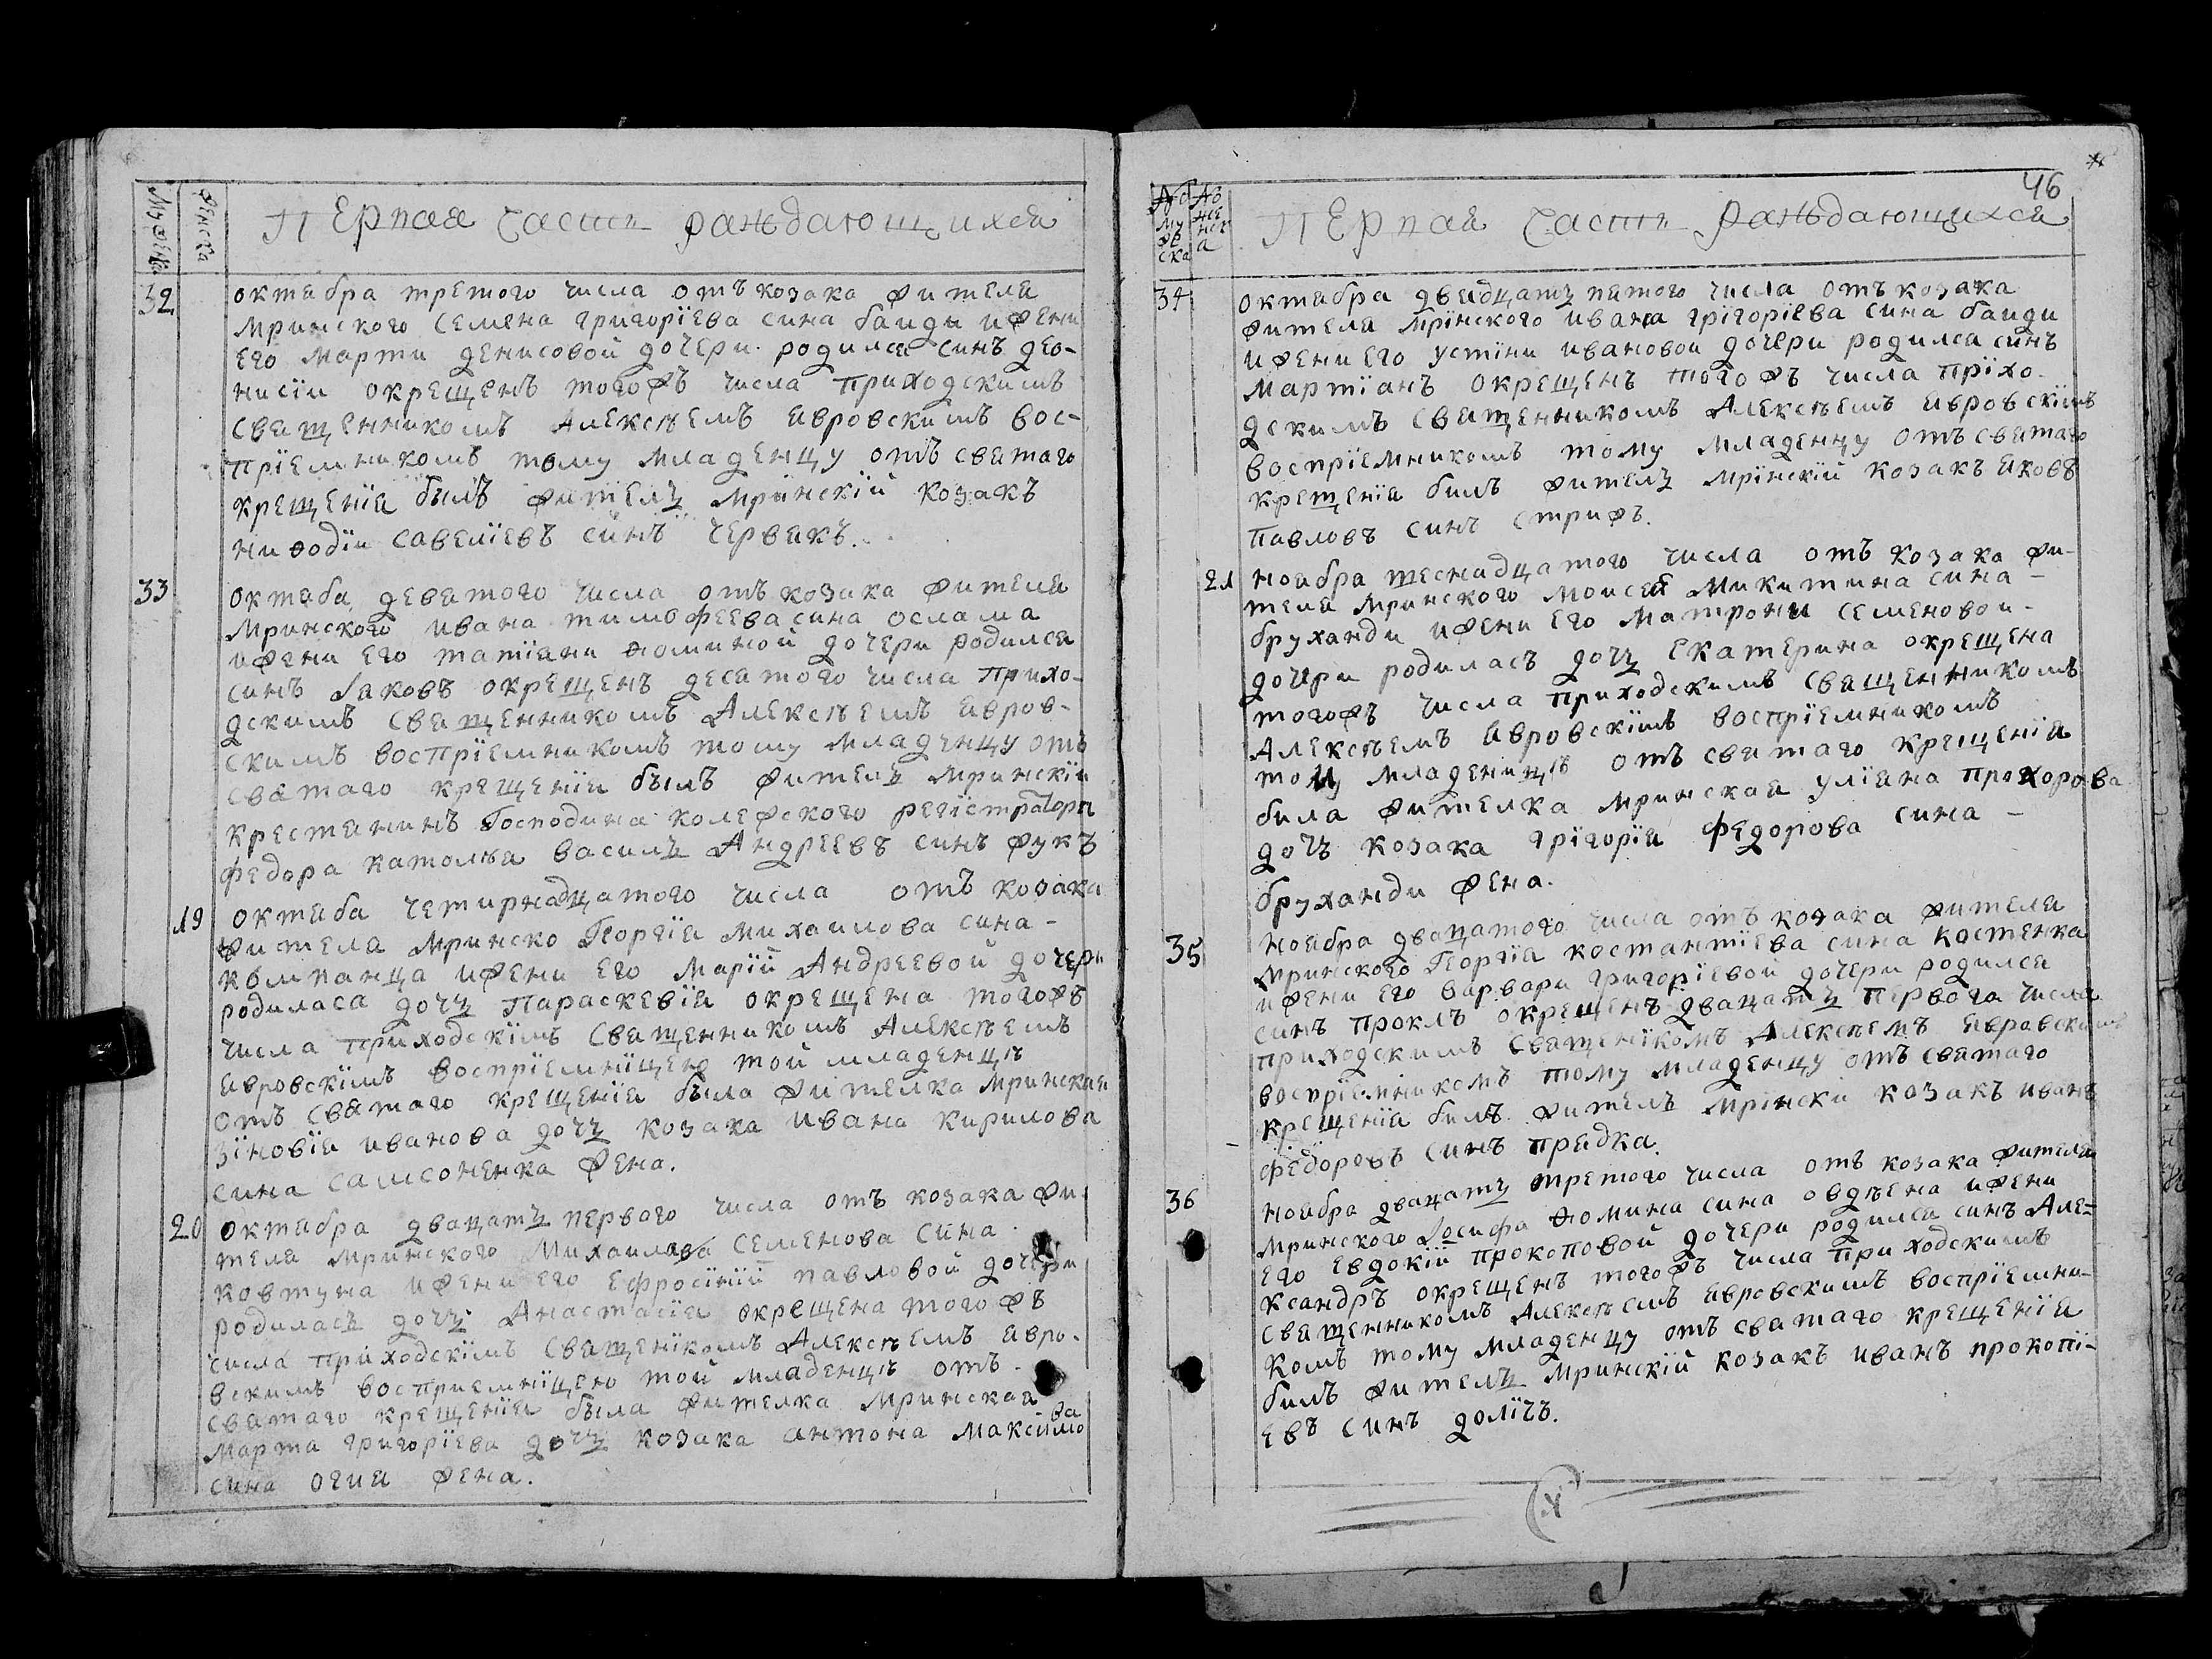 Мужеска
Женска
Перпая Части раждающихся
32
октабра третого числа отъ козака жителя
Мринского Семена григорїева сина баиди ижени
его Марти денисовой дочери родился синъ део-
нисїи окрещенъ тогожъ числа приходскимъ
священникомъ Алексѣемъ явровскимъ вос-
прїемникомъ тому младенцу отъ святаго
крещенїя былъ жителъ мринскїй козакъ
никодїи савелїевъ синъ червякъ.
33
октаба девятого числа отъ козака жителя
Мринского ивана тимофеева сина ослама
ижени его татїани ѳоминой дочери родился
синъ Іаковъ окрещенъ десятого числа прихо-
дскимъ священникомъ Алексѣемъ явров-
скимъ воспрїемникомъ тому младенцу отъ
святаго крещенїя былъ жителъ Мринскїи
крестянинъ Господина колежского регїстратори
федора католѣя василъ Андреевъ синъ жукъ
19
октяба четирнадцатого числа отъ козака
жителя мринско Георгїя михаилова сина-
компанца ижени его Марїй Андреевой дочери
родиласа дочъ Параскевїя окрещена тогожъ
числа приходскїмъ священникомъ Алексѣемъ
явровскїмъ воспрїемнїцею той младенцѣ
отъ святаго крещенїя была жителка мринская
зїновїя иванова дочъ козака ивана кирилова
сина самсоненка жена.
20
октябра двацатъ первого числа отъ козака жи-
теля мринского Михаилова семенова сина
ковтуна ижени его ефросїнїй павловой дочери
родиласъ дочъ Анастасїя окрещена тогожъ
числа приходскїмъ священїкомъ Алексѣемъ явро-
вскимъ восприемнїцею той младенцѣ отъ
святаго крещенїя была жителка мринская
Марта григорїева дочъ козака антона максимова
сина огия жена.
46
No No
му же
же нск
ска а
Перпая Части Раждающихся
34
октября двадцатъ пятого числа отъ козака
жителя мрїнского ивана грїгорїева сина баиди
ижени его устїни ивановои дочери родился синъ
мартїанъ окрещенъ тогожъ числа прїхо-
дскимъ священникомъ Алексѣемъ явровскїмъ
воспрїемникомъ тому младенцу отъ святаго
крещенїя билъ жителъ мрїнскїй козакъ яковъ
павловъ синъ стрижъ.
21
ноября шеснадцатого числа отъ козака жи-
теля мринского моисея Микитина сина-
бруханди ижени его матрони семеновои-
дочери родиласъ дочъ екатерина окрещена
тогожъ числа приходскимъ священникомъ
Алексѣемъ явровскїмъ воспрїемникомъ
тому младеницѣ отъ святаго крещенїя
била жителка мринская улїана прохорова
дочъ козака грїгорїя федорова сина-
бруханди жена.
35
ноября двацатого числа отъ козака жителя
мринского Георгїя костантїева сина костенка
ижени его варвари григорїевой дочери родился
синъ проклъ окрещенъ двацатъ первого числа
приходскимъ священїкомъ Алексѣемъ явровскимъ
воспрїемникомъ тому младенцу отъ святаго
крещенїя билъ жителъ мрїнски козакъ иванъ
федоровъ синъ прядка.
36
ноября двацатъ третого числа отъ козака жителя
мринского Іосифа ѳомина сина овдѣена ижени
его евдокїй прокоповой дочери родился синъ Але-
ксандръ окрещенъ тогожъ числа приходскимъ
священникомъ Алексѣемъ явровскимъ воспрїемни-
комъ тому младенцу отъ святаго крещенїя
билъ жителъ мринскїй козакъ иванъ прокопї-
евъ синъ долїчъ.